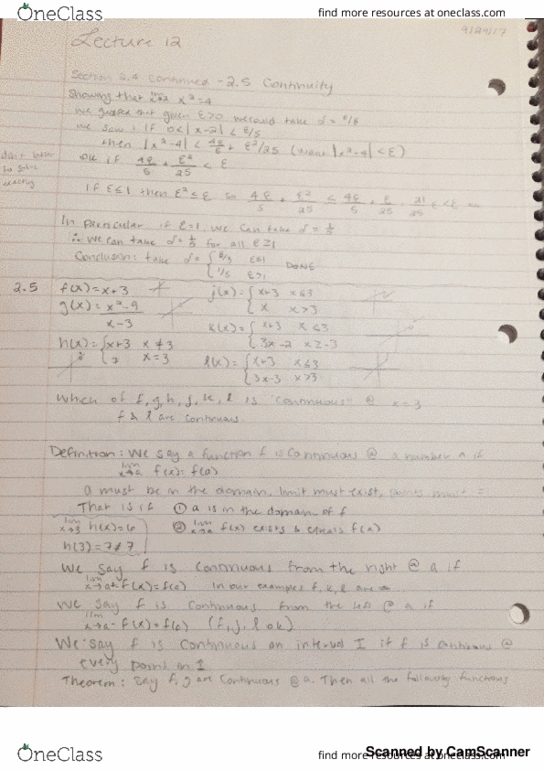 OneClass
find more resources at oneclass.com
Lecture 12
Section 2.4 continued - 2.5 Continuity
Showing that lim x→2 x²=4
we guessed that given ε>0 we could take δ = ε/5
we saw: if 0<|x-2|< ε/5
then |x²-4| < 4ε/5 + ε²/25 (want |x²-4|<ε)
OK if 4ε/5 + ε²/25 < ε
If ε≤1 then ε²≤ε so 4ε/5 + ε²/25 ≤ 4ε/5 + ε/25 = 21/25 ε < ε
In particular if ε=1, we can take δ = 1/5
∴ we can take δ = 1/5 for all ε≥1
Conclusion: take δ = { ε/5 ε≤1
1/5 ε>1 DONE
2.5 f(x)=x+3
j(x)= { x+3 x≤3
x x>3
g(x)= x²-9
x-3
k(x)= { x+3 x≤3
3x-2
h(x)= { x+3 x≠3
x=3
l(x)= { x+3 x≤3
3x-3 x>3
Which of f, g, h, j, k, l is "continuous" @ x=3
f & l are continuous
Definition: We say a function f is continuous @ a number a if
lim x→a f(x)=f(a)
a must be in the domain, limit must exist, must =
That is if ① a is in the domain of f
lim x→3 h(x)=6 ② lim x→a f(x) exists & equals f(a)
h(3)=7≠7
We say f is continuous from the right @ a if
lim x→a+ f(x)=f(a) In our examples f, k, l are
We say f is continuous from the left @ a if
lim x→a- f(x)=f(a) (f, j, l ok)
We say f is continuous on an interval I if f is continuous @
every point in I
Theorem: Say f, g are continuous @ a. Then all the following functions
Scanned by CamScanner
OneClass
find more resources at oneclass.com